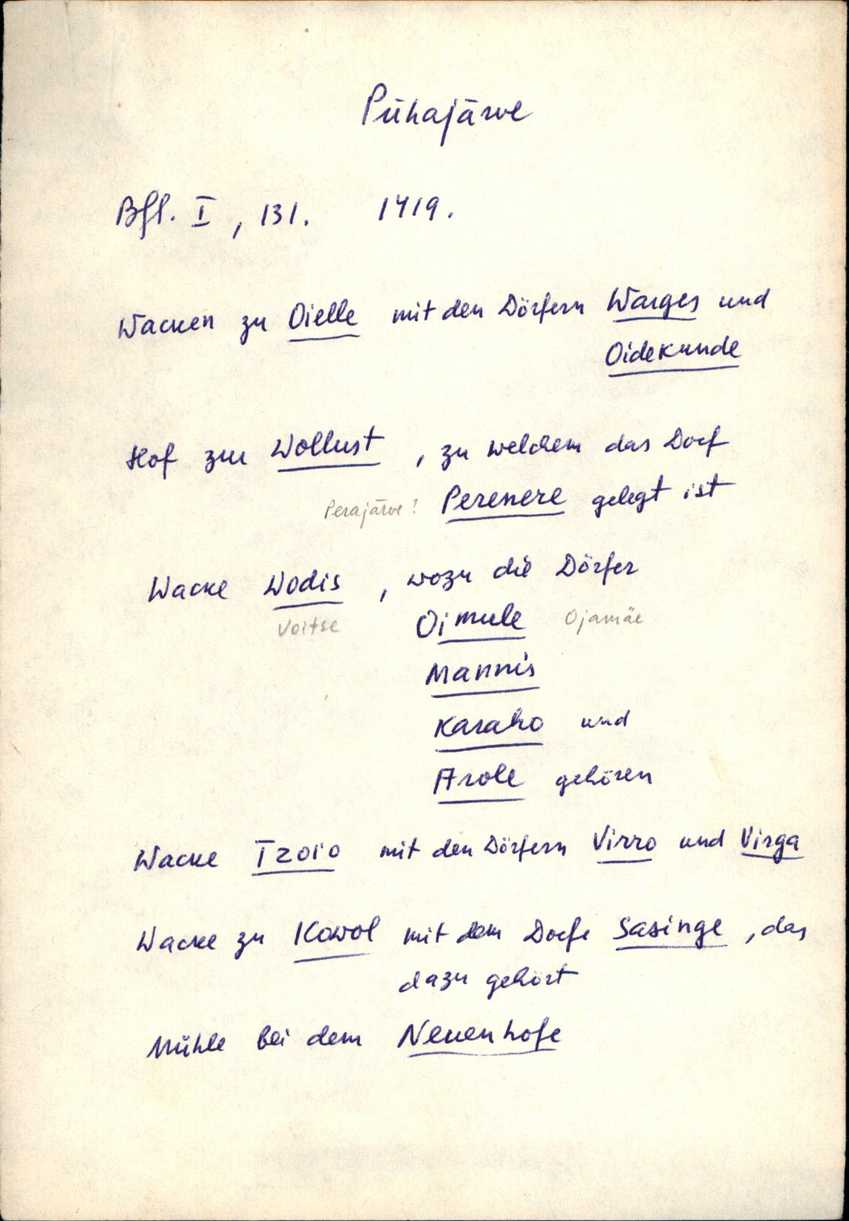 Pühajärve
Bfl. I, 131. 1419.
Wacken zu Oielle mit den Dörfern Warges und
Oidekunde
Hof zur Wollust, zu welchem das Dorf
Perajärve? Perenere gelegt ist
Wacke Wodis, wozu die Dörfer
Voitse Oimule Ojamäe
Mannis
Karaho und
Arole gehören
Wacke Izoio mit den Dörfern Virro und Virga
Wacke zu Kowol mit dem Dorfe Sasinge, das
dazu gehört
Mühle bei dem Neuenhofe